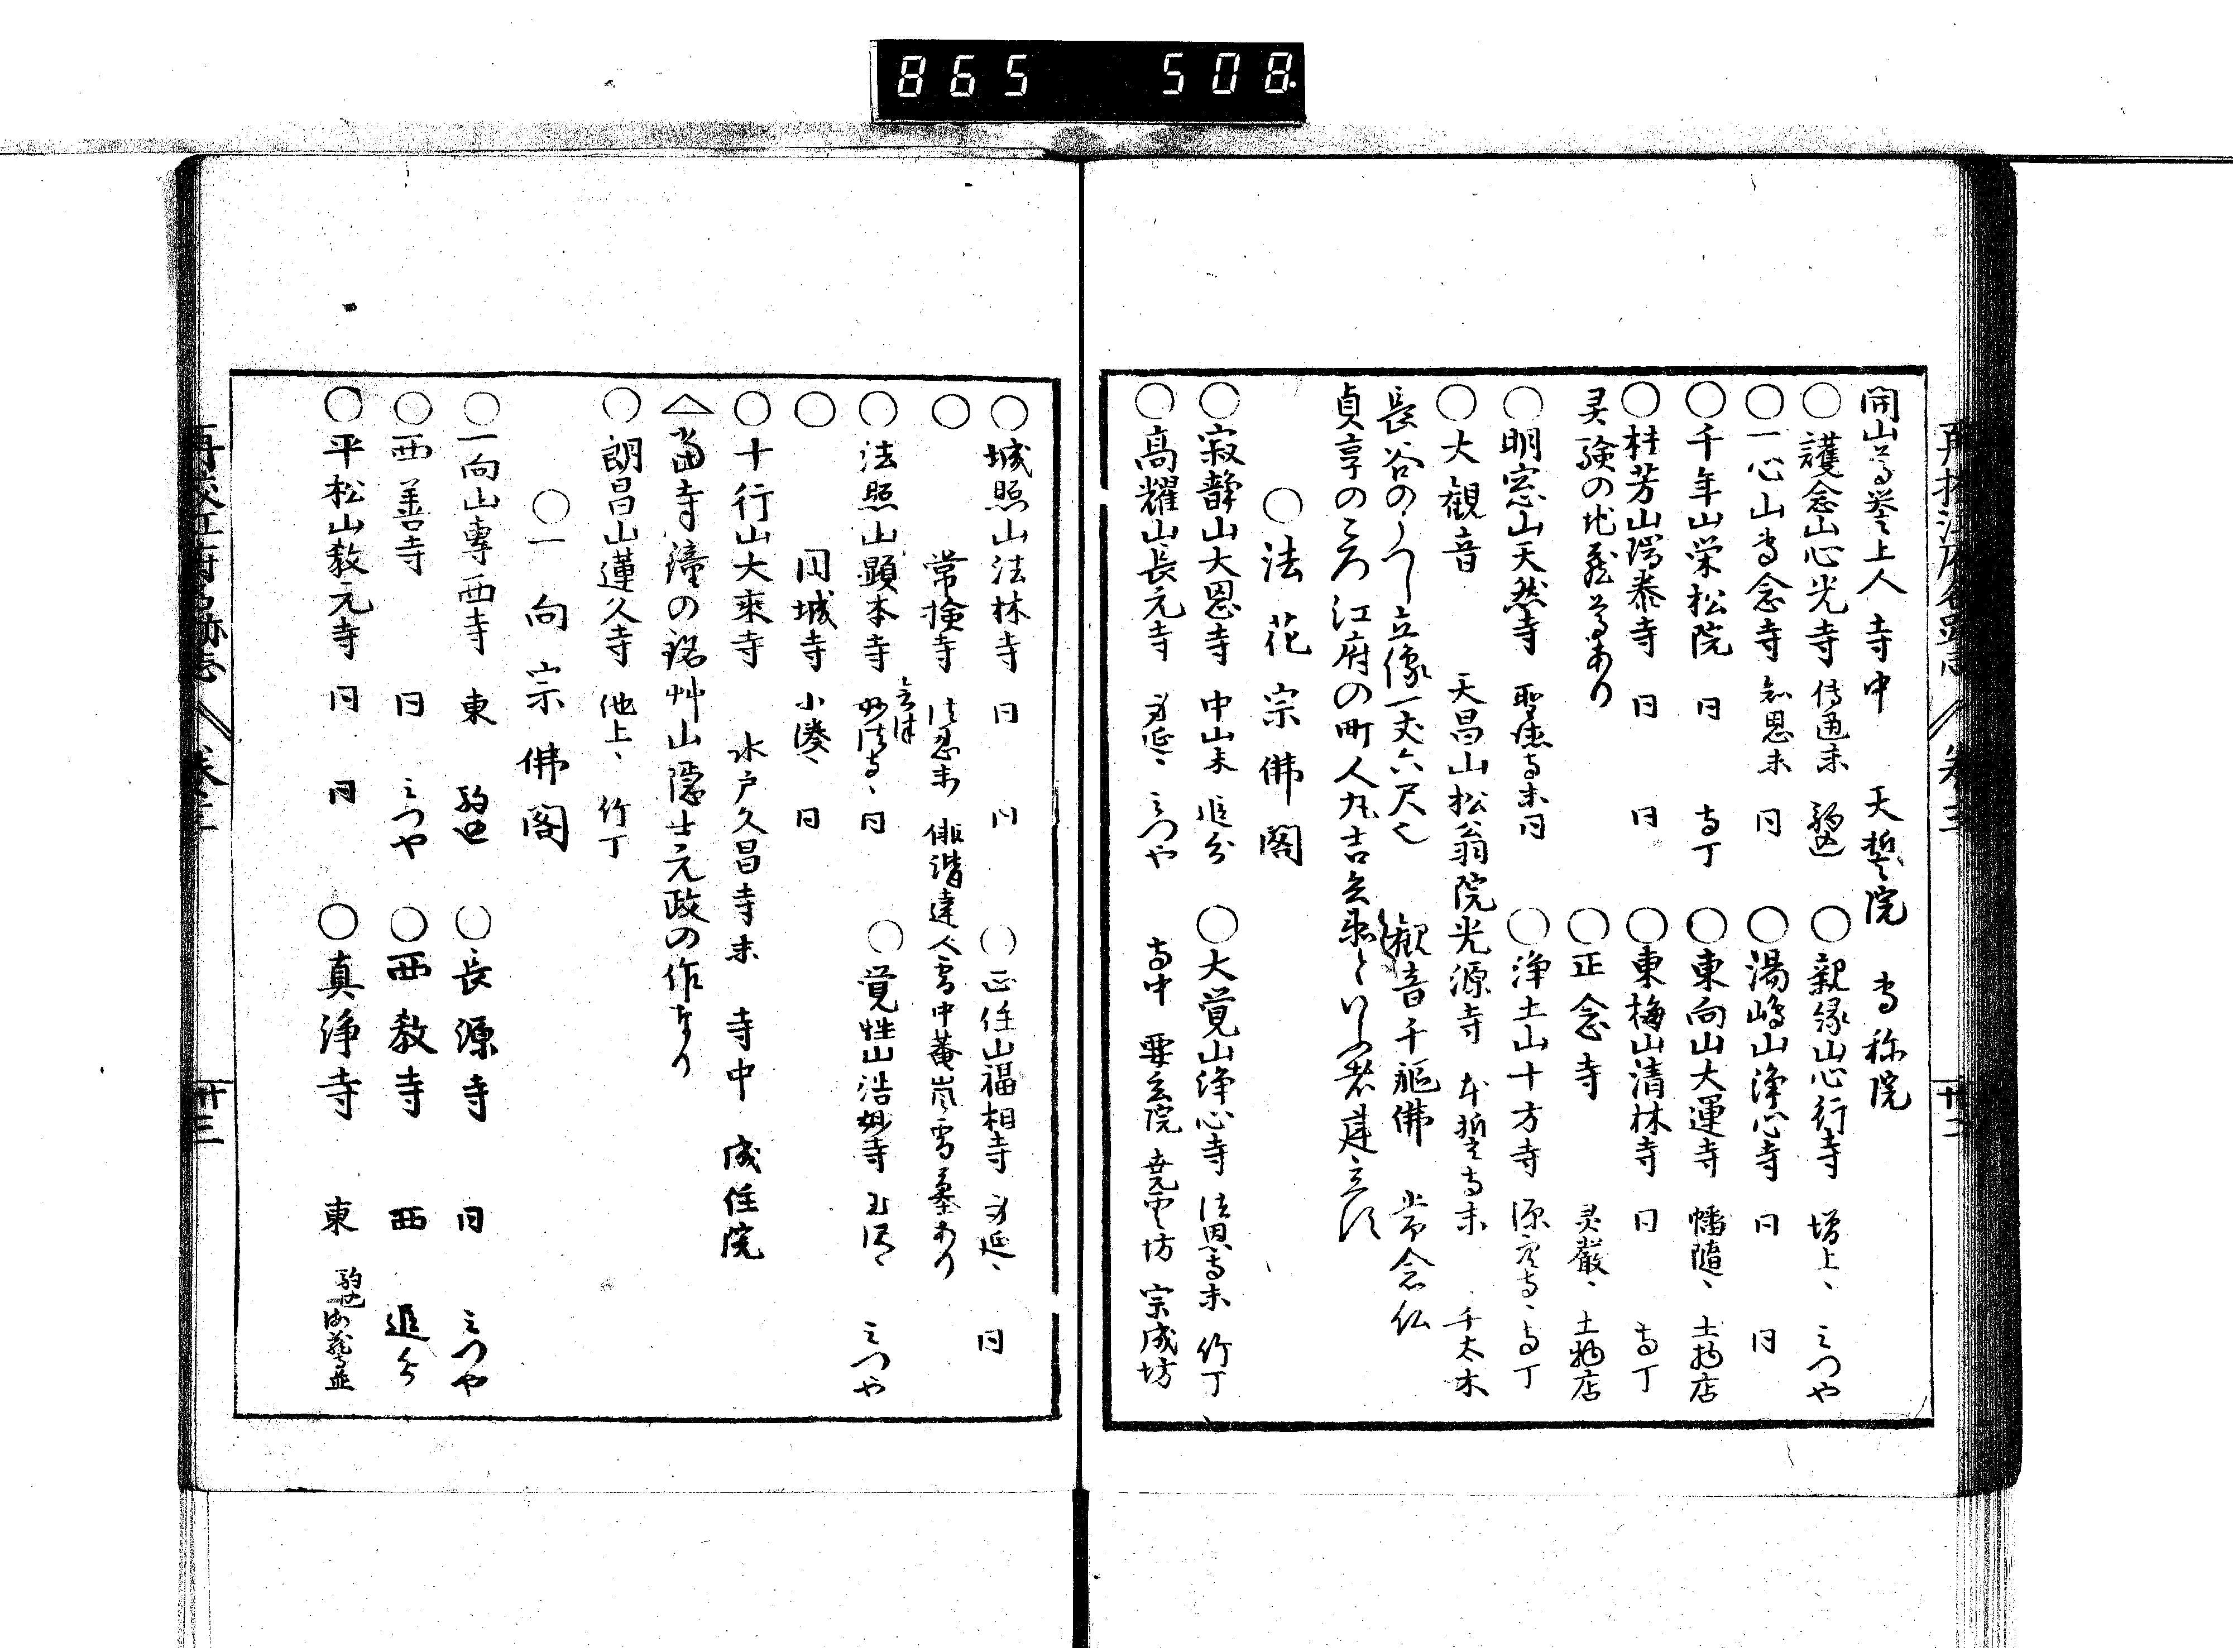 865 508
開山〻誉上人 寺中 天誓院 専称院
〇護念山心光寺 傳通末 駒込 〇親縁山心行寺 増上〻 三つや
〇一心山専念寺 知恩末 同 〇湯嶋山浄心寺 同 同
〇千年山栄松院 同 寺丁 〇東向山大運寺 幡随〻 土物店
〇桂芳山瑞泰寺 同 同 〇東梅山清林寺 同 寺丁
灵験の地蔵尊あり 〇正念寺 灵巌〻 土物店
〇明窓山天然寺 同 〇浄土山十方寺 源覚寺〻 寺丁
〇大観音 天昌山松翁院光源寺 本誓寺末 千太木
長谷のうつし立像一丈六尺也 観音千躯佛 常念仏
貞享のころ江府の町人丸吉兵衛といふ者建立す
〇法花宗佛閣
〇寂静山大恩寺 中山末 追分 〇大覚山浄心寺 法恩寺末 竹丁
〇高耀山長元寺 身延〻 三つや 寺中 要玄院 尭雲坊 宗成坊
〇城照山法林寺 同 同 〇正住山福相寺 身延〻 同
〇常撿寺 俳諧達人雪中菴嵐雪墓あり
〇法照山顕本寺 会津妙法寺〻 同 〇覚性山浩妙寺 三つや
〇円城寺 小湊〻 同
〇十行山大乗寺 水戸久昌寺末 寺中 成住院
△當寺鐘の銘艸山隠士元政の作なり
〇朗昌山蓮久寺 池上〻 竹丁
〇一向宗佛閣
〇一向山專西寺 東 駒込 〇長源寺 同 三つや
〇西善寺 同 三つや 〇西教寺 西 追分
〇平松山教元寺 同 同 〇真浄寺 東 駒込